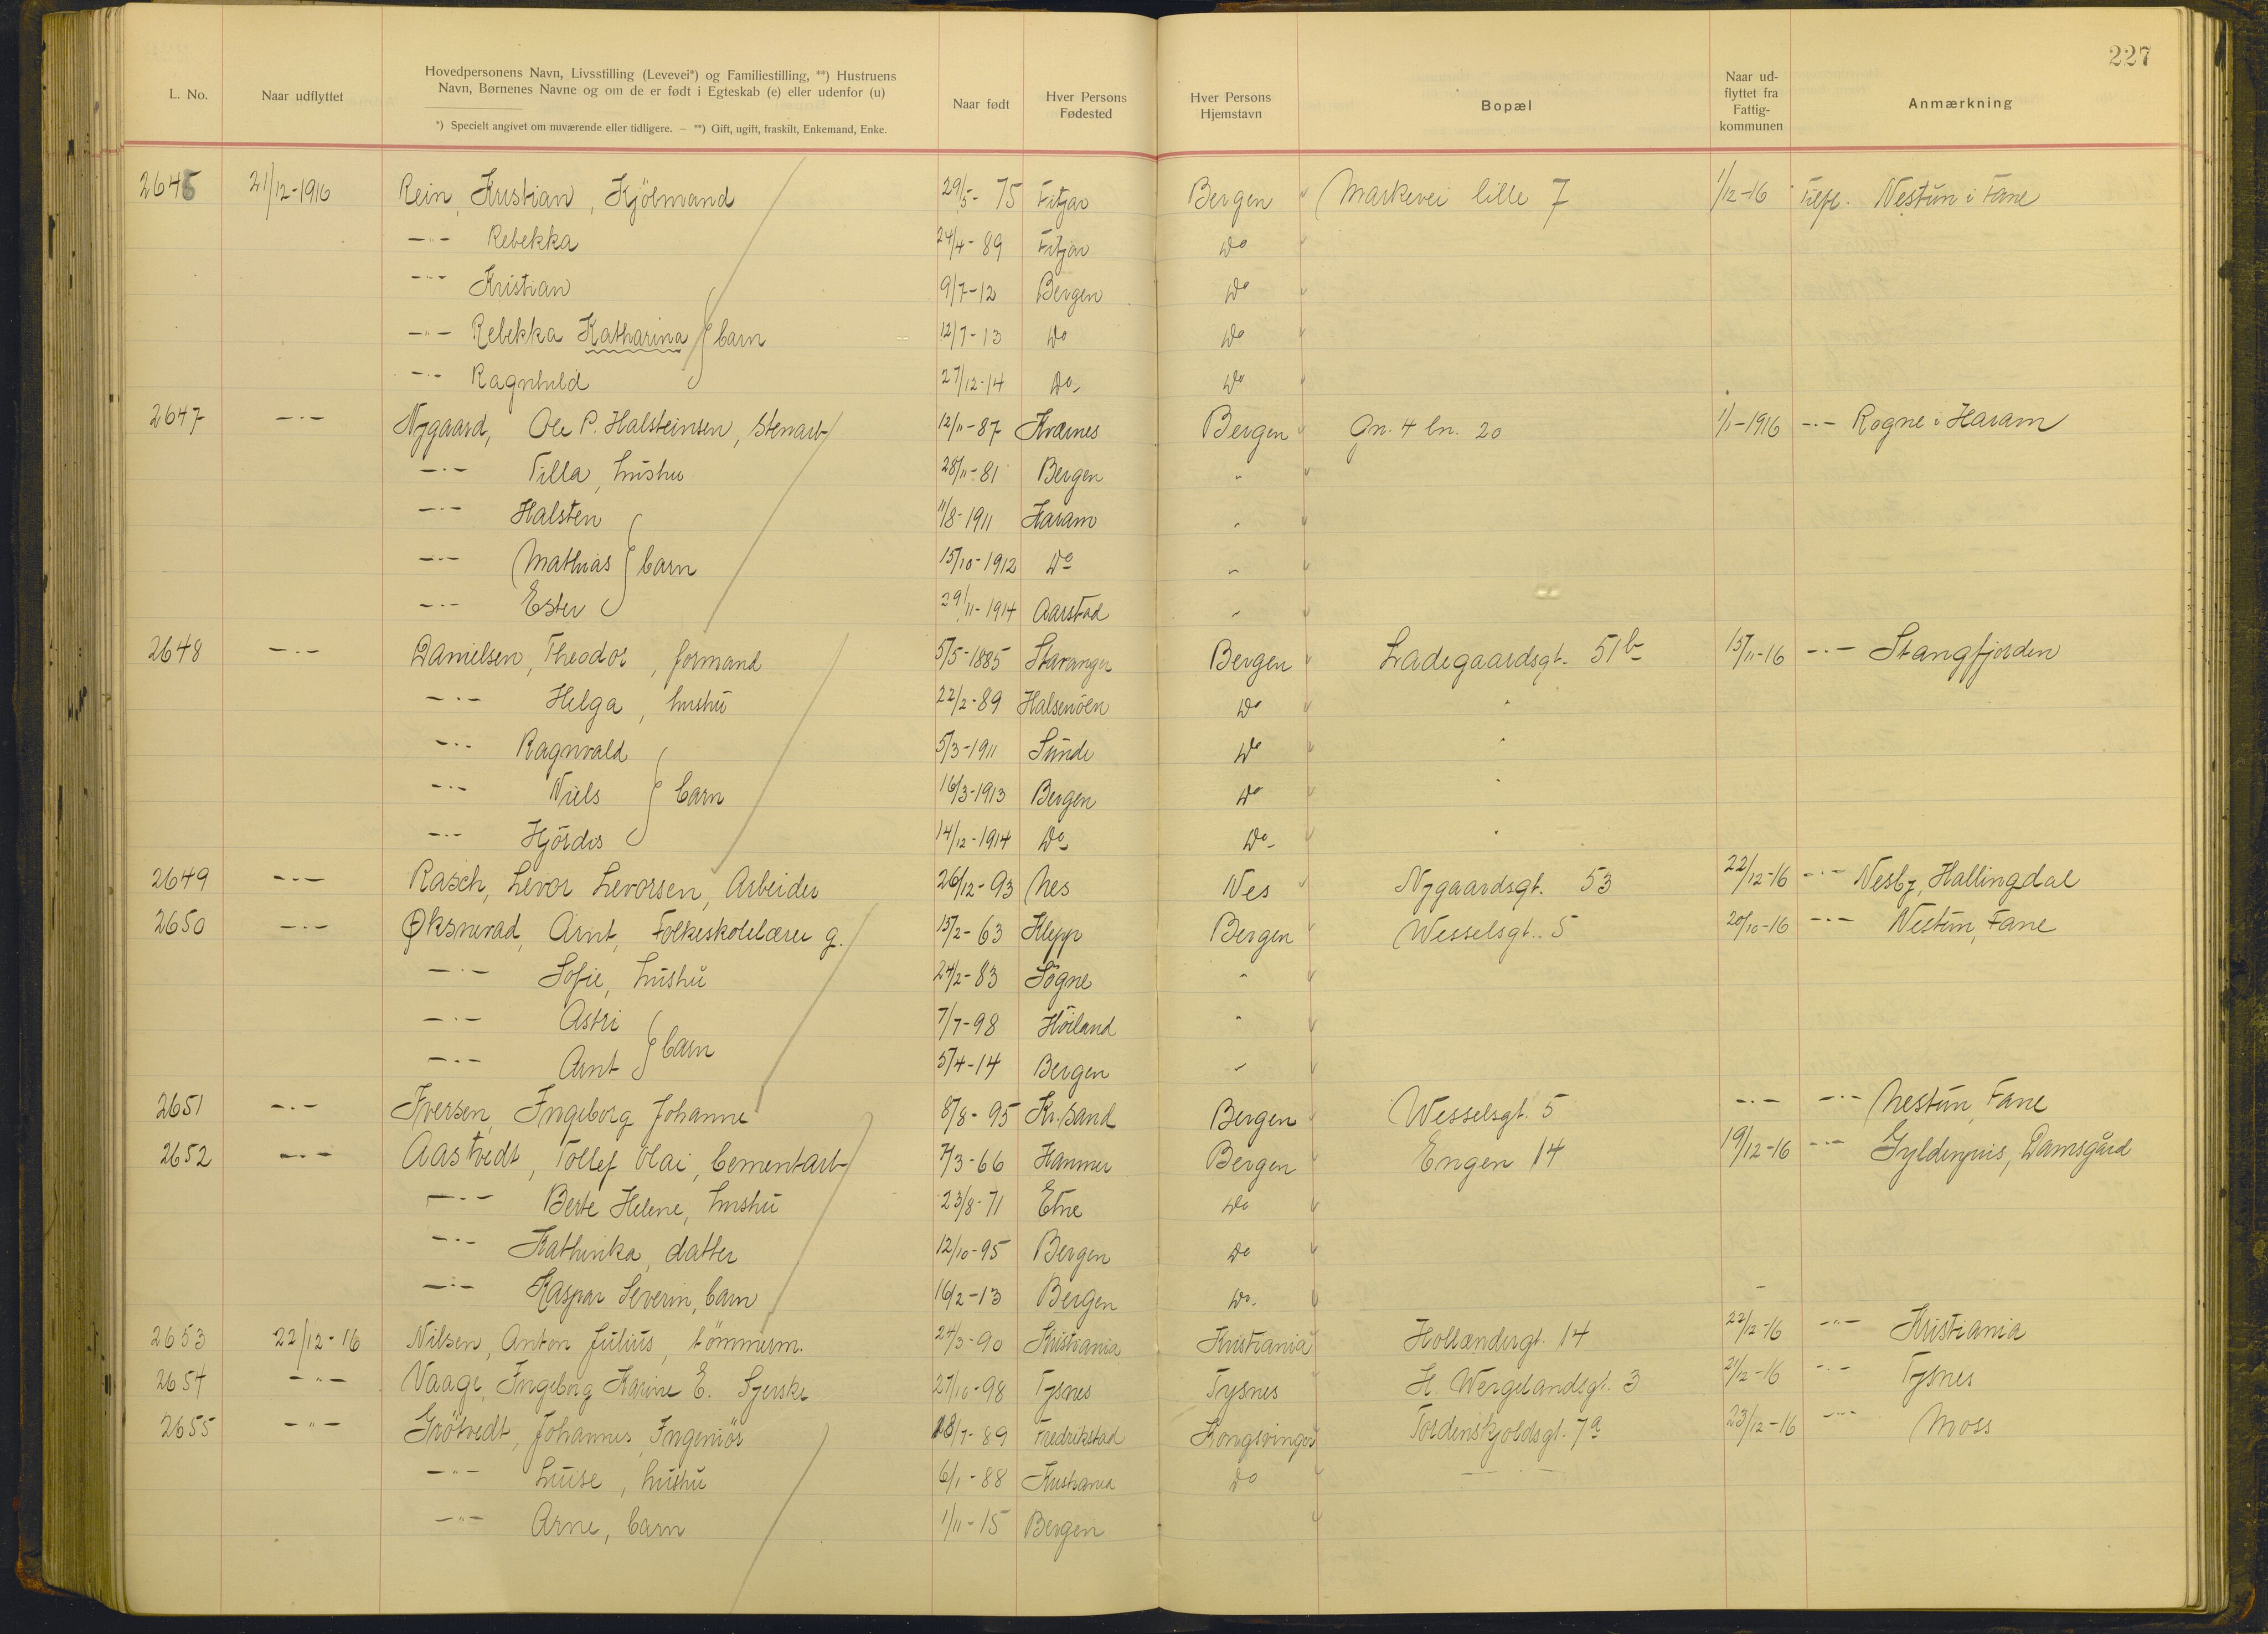 227
L. No.
Naar udflyttet
Hovedpersonens Navn, Livsstilling (Levevei*) og Familiestilling, **) Hustruens
Navn, Børnenes Navne og om de er født i Egteskab (e) eller udenfor (u)
*) Specielt angivet om nuværende eller tidligere. — **) Gift, ugift, fraskilt, Enkemand, Enke.
Naar født
Hver Persons
Fødested
Hver Persons
Hjemstavn
Bopæl
Naar ud-
flyttet fra
Fattig-
kommunen
Anmærkning
21/12-1916 Rein, Kristian, Kjölmand 29/5-75 Fitjar Bergen Markevei lille 7 1/12-16 Nestun i Fane
-"- Rebekka 24/4-89 Fitjar Do
-"- Kristian 9/7-12 Bergen Do
-"- Rebekka Katharina } barn 12/7-13 Do Do
-"- Ragnhild 27/12-14 Do Do
2647 -"- Nygaard, Ole P. Halsteinsen, Stenarb 12/11-87 Bergen Gn. 4 bn. 20 1/1-1916 -"- Rogne i Haram
-"- Villa, hustru 28/11-81 Bergen "
-"- Halsten 11/8-1911 Haram "
-"- Mathias } barn 15/10-1912 Do "
-"- Ester 29/11-1914 Aarstad "
2648 -"- Danielsen, Theodor, formand 5/5-1885 Stavanger Bergen Ladegaardsgt. 51b 15/11-16 -"- Stangfjorden
-"- Helga, hustru 22/2-89 Halsenöen Do "
-"- Ragnvald 5/3-1911 Sunde Do "
-"- Niels } barn 16/3-1913 Bergen Do "
-"- Hjördis 14/12-1914 Do Do "
2649 -"- Rasch, Levor Levorsen, Arbeider 26/12-93 Nes Nes Nygaardsgt. 53 22/12-16 -"- Nesby, Hallingdal
2650 -"- Øksnevad, Arnt, Folkeskolelærer g. 15/2-63 Klepp Bergen Wesselsgt. 5 20/10-16 -"- Nestun, Fane
-"- Sofie, hustru 24/2-83 Sögne "
-"- Astri } barn 7/7-98 Höiland "
-"- Arnt 5/4-14 Bergen "
2651 -"- Iversen, Ingeborg Johanne 8/8-95 Kr.sand Bergen Wesselsgt. 5 -"- -"- Nestun, Fane
2652 -"- Aastvedt, Tollef Olai, Cementarb 7/3-66 Hammer Bergen Engen 14 19/12-16 -"- Gyldenpris, Damsgård
-"- Berte Helene, hustru 23/8-71 Etne Do
-"- Kathinka, datter 12/10-95 Bergen Do
-"- Kaspar Severin, barn 16/2-13 Bergen Do -
2653 22/12-16 Nilsen, Anton Julius, tömmerm. 24/3-90 Kristiania Kristiania Hollendergt. 14 22/12-16 -"- Kristiania
2654 -"- Vaage, Ingeborg Karine E. Syerske 27/10-98 Tysnes Tysnes H. Wergelandsgt. 3 21/12-16 -"- Tysnes
2655 -"- Grötvedt, Johannes, Ingeniör 18/7-89 Fredrikstad Kongsvinger Tordenskjoldsgt. 7a 23/12-16 -"- Moss
-"- Luise, hustru 6/1-88 Kristiania Do -"-
-"- Arne, barn 1/11-15 Bergen